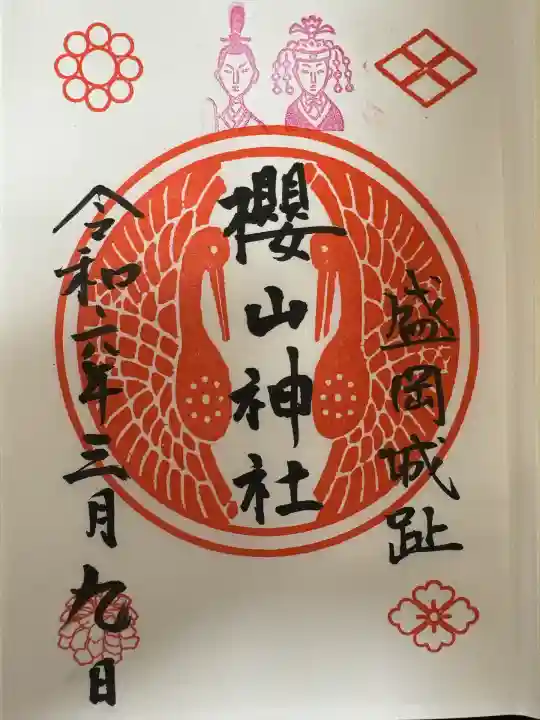 盛岡城趾
櫻山神社
令和六年三月九日